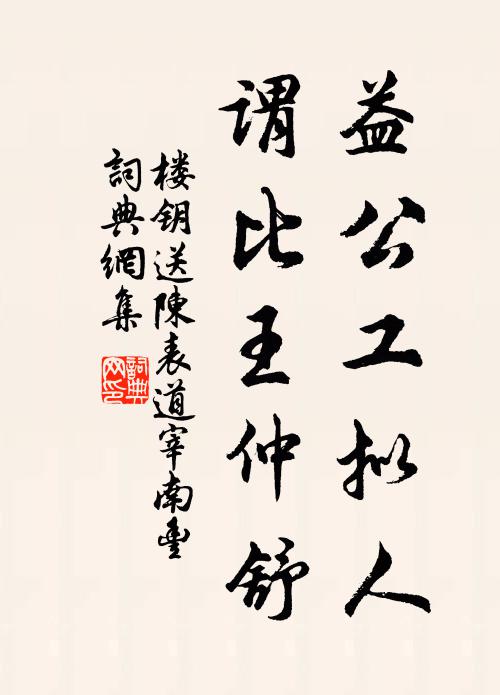 益公工拟人
谓比王仲舒
楼钥送陳表道宰南豐
詞典網集
詞典网印